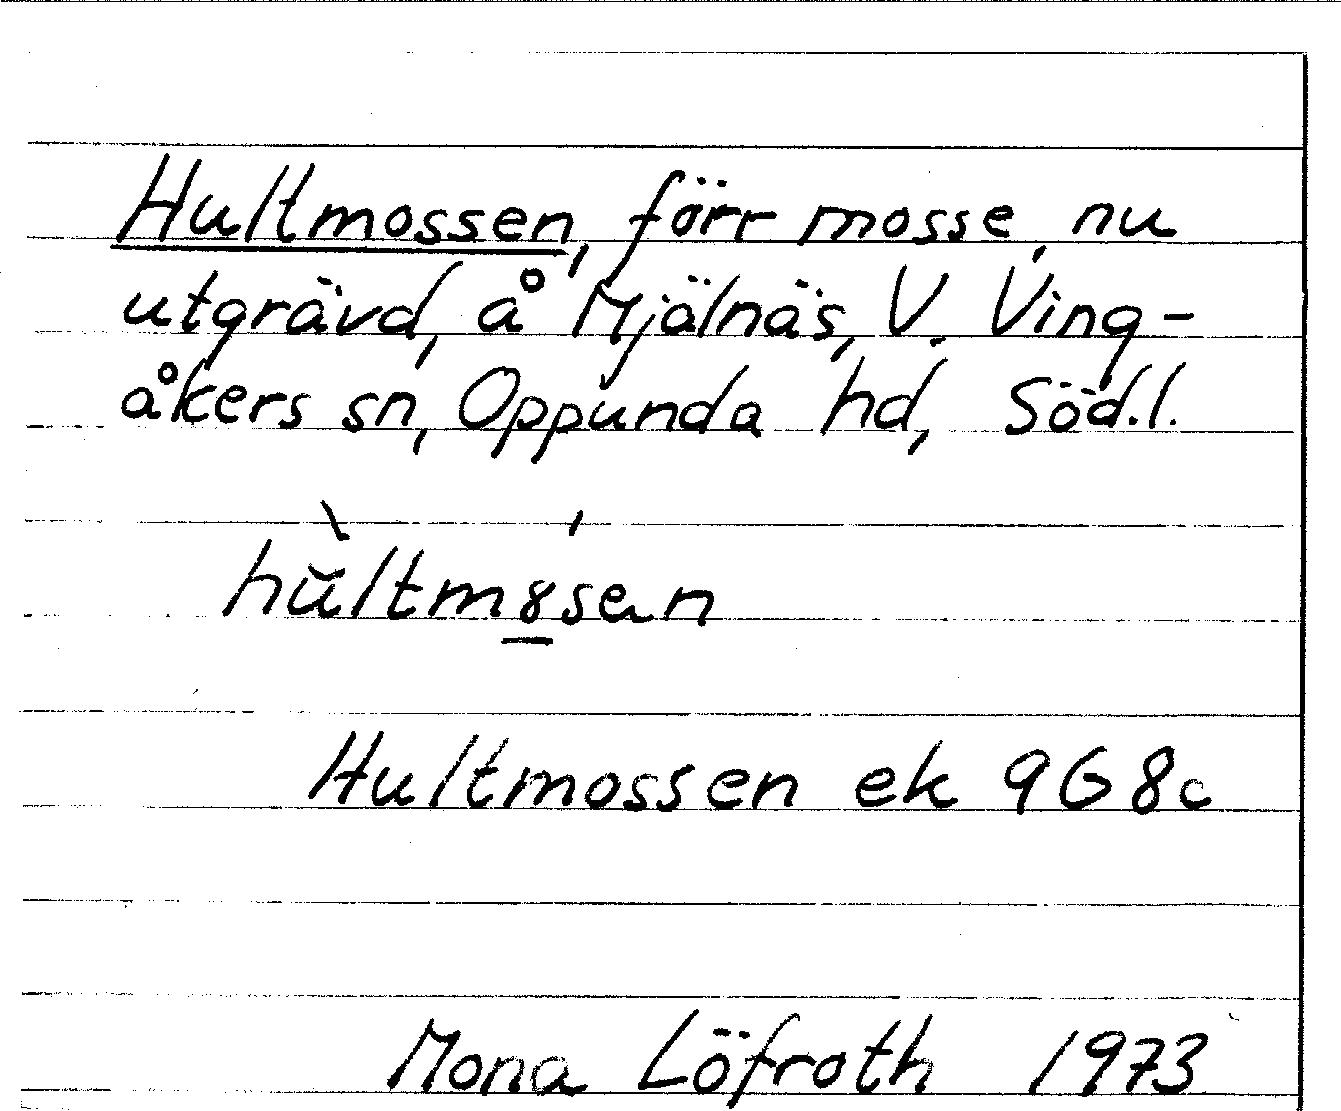 Hultmossen, förr mosse, nu
utgrävd, å Mjälnäs, V. Ving-
åkers sn, Oppunda hd, Söd.l.
hŭ̀ltm8̲́sen
Hultmossen ek 9G8c
Mona Löfroth 1973